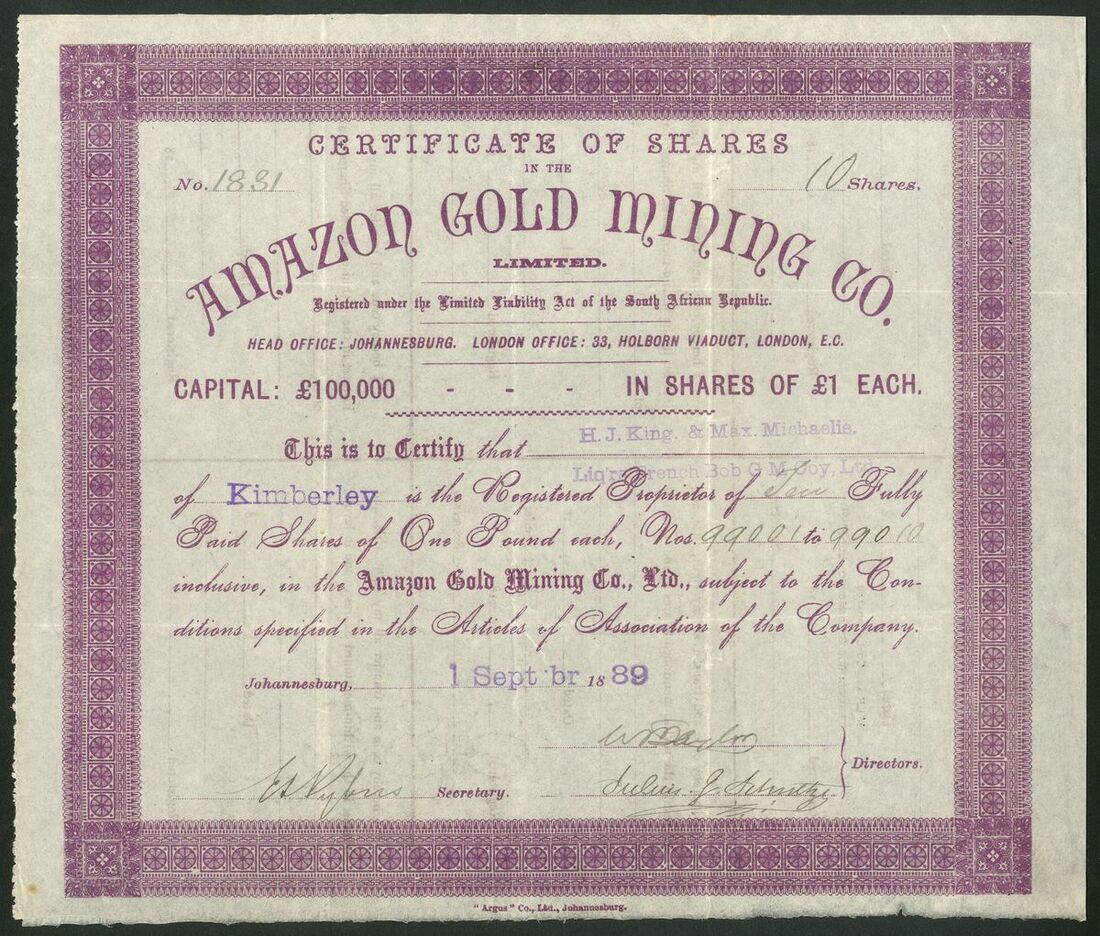 CERTIFICATE OF SHARES
IN THE
No. 1831 10 Shares.
AMAZON GOLD MINING CO.
LIMITED.
Registered under the Limited Liability Act of the South African Republic.
HEAD OFFICE: JOHANNESBURG. LONDON OFFICE: 33, HOLBORN VIADUCT, LONDON, E.C.
CAPITAL: £100,000 - - - IN SHARES OF £1 EACH.
This is to Certify that H.J. King. & Max. Michaelis.
Liq'rs French Bob G M Coy, Ltd
of Kimberley is the Registered Proprietor of Ten Fully
Paid Shares of One Pound each, Nos. 99001 to 99010
inclusive, in the Amazon Gold Mining Co., Ltd., subject to the Con-
ditions specified in the Articles of Association of the Company.
Johannesburg, 1 Sept br 1889
Directors.
Secretary. Julius. J.
"Argus" Co., Ltd., Johannesburg.